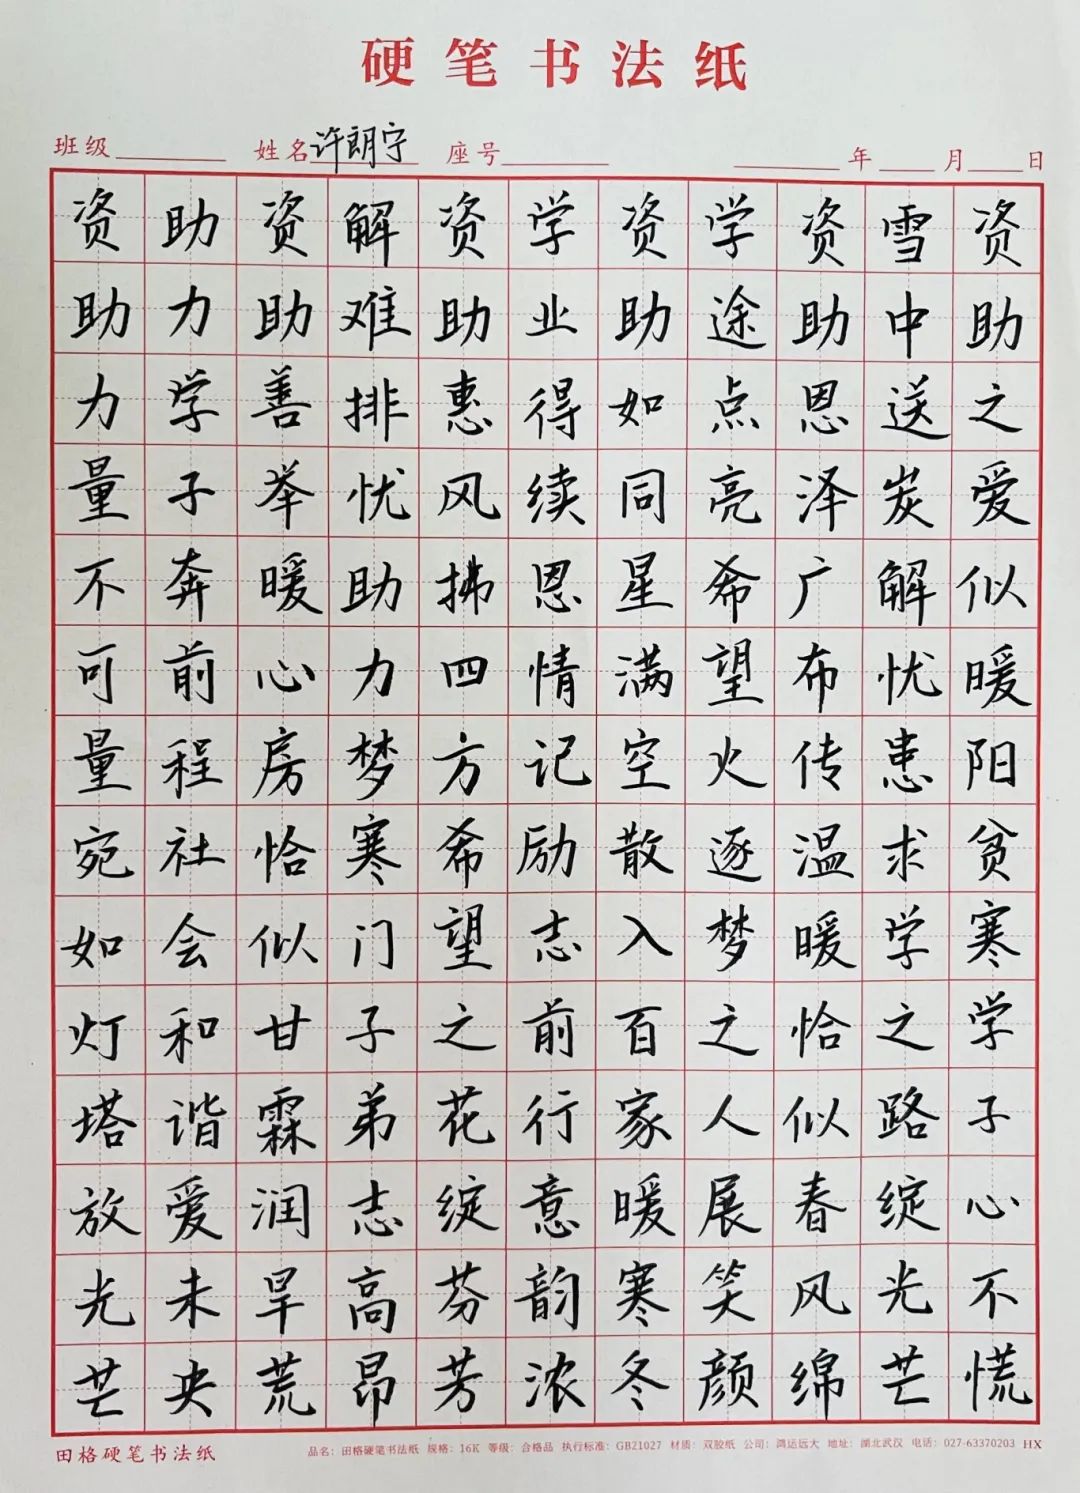 硬笔书法纸
班级 姓名 许朗宁 座号 年 月 日
资助之爱似暖阳贫寒学子心不慌
雪中送炭解忧患求学之路绽光芒
资助恩泽广布传温暖恰似春风绵
学途点亮希望火逐梦之人展笑颜
资助如同星满空散入百家暖寒冬
学业得续恩情记励志前行意韵浓
资助惠风拂四方希望之花绽芬芳
解难排忧助力梦寒门子弟志高昂
资助善举暖心房恰似甘霖润旱荒
助力学子奔前程社会和谐爱未央
资助力量不可量宛如灯塔放光芒
田格硬笔书法纸
品名：田格硬笔书法纸 规格：16K 等级：合格品 执行标准：GB21027 材质：双胶纸 公司：鸿运远大 地址：湖北武汉 电话：027-63370203 HX